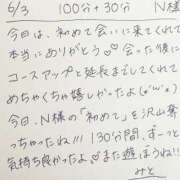 6/3 100分+30分 N様
今日は、初めて会いに来てくれて
本当にありがとう♡会った後に
コースアップと延長までしてくれて
めちゃくちゃ嬉しかったよ(*'ω'*)
今日、N様の「初めて」を沢山奪
っちゃったね!!!130分間、ずーっと
気持ち良かったよ♡また遊ぼうね!!
みと